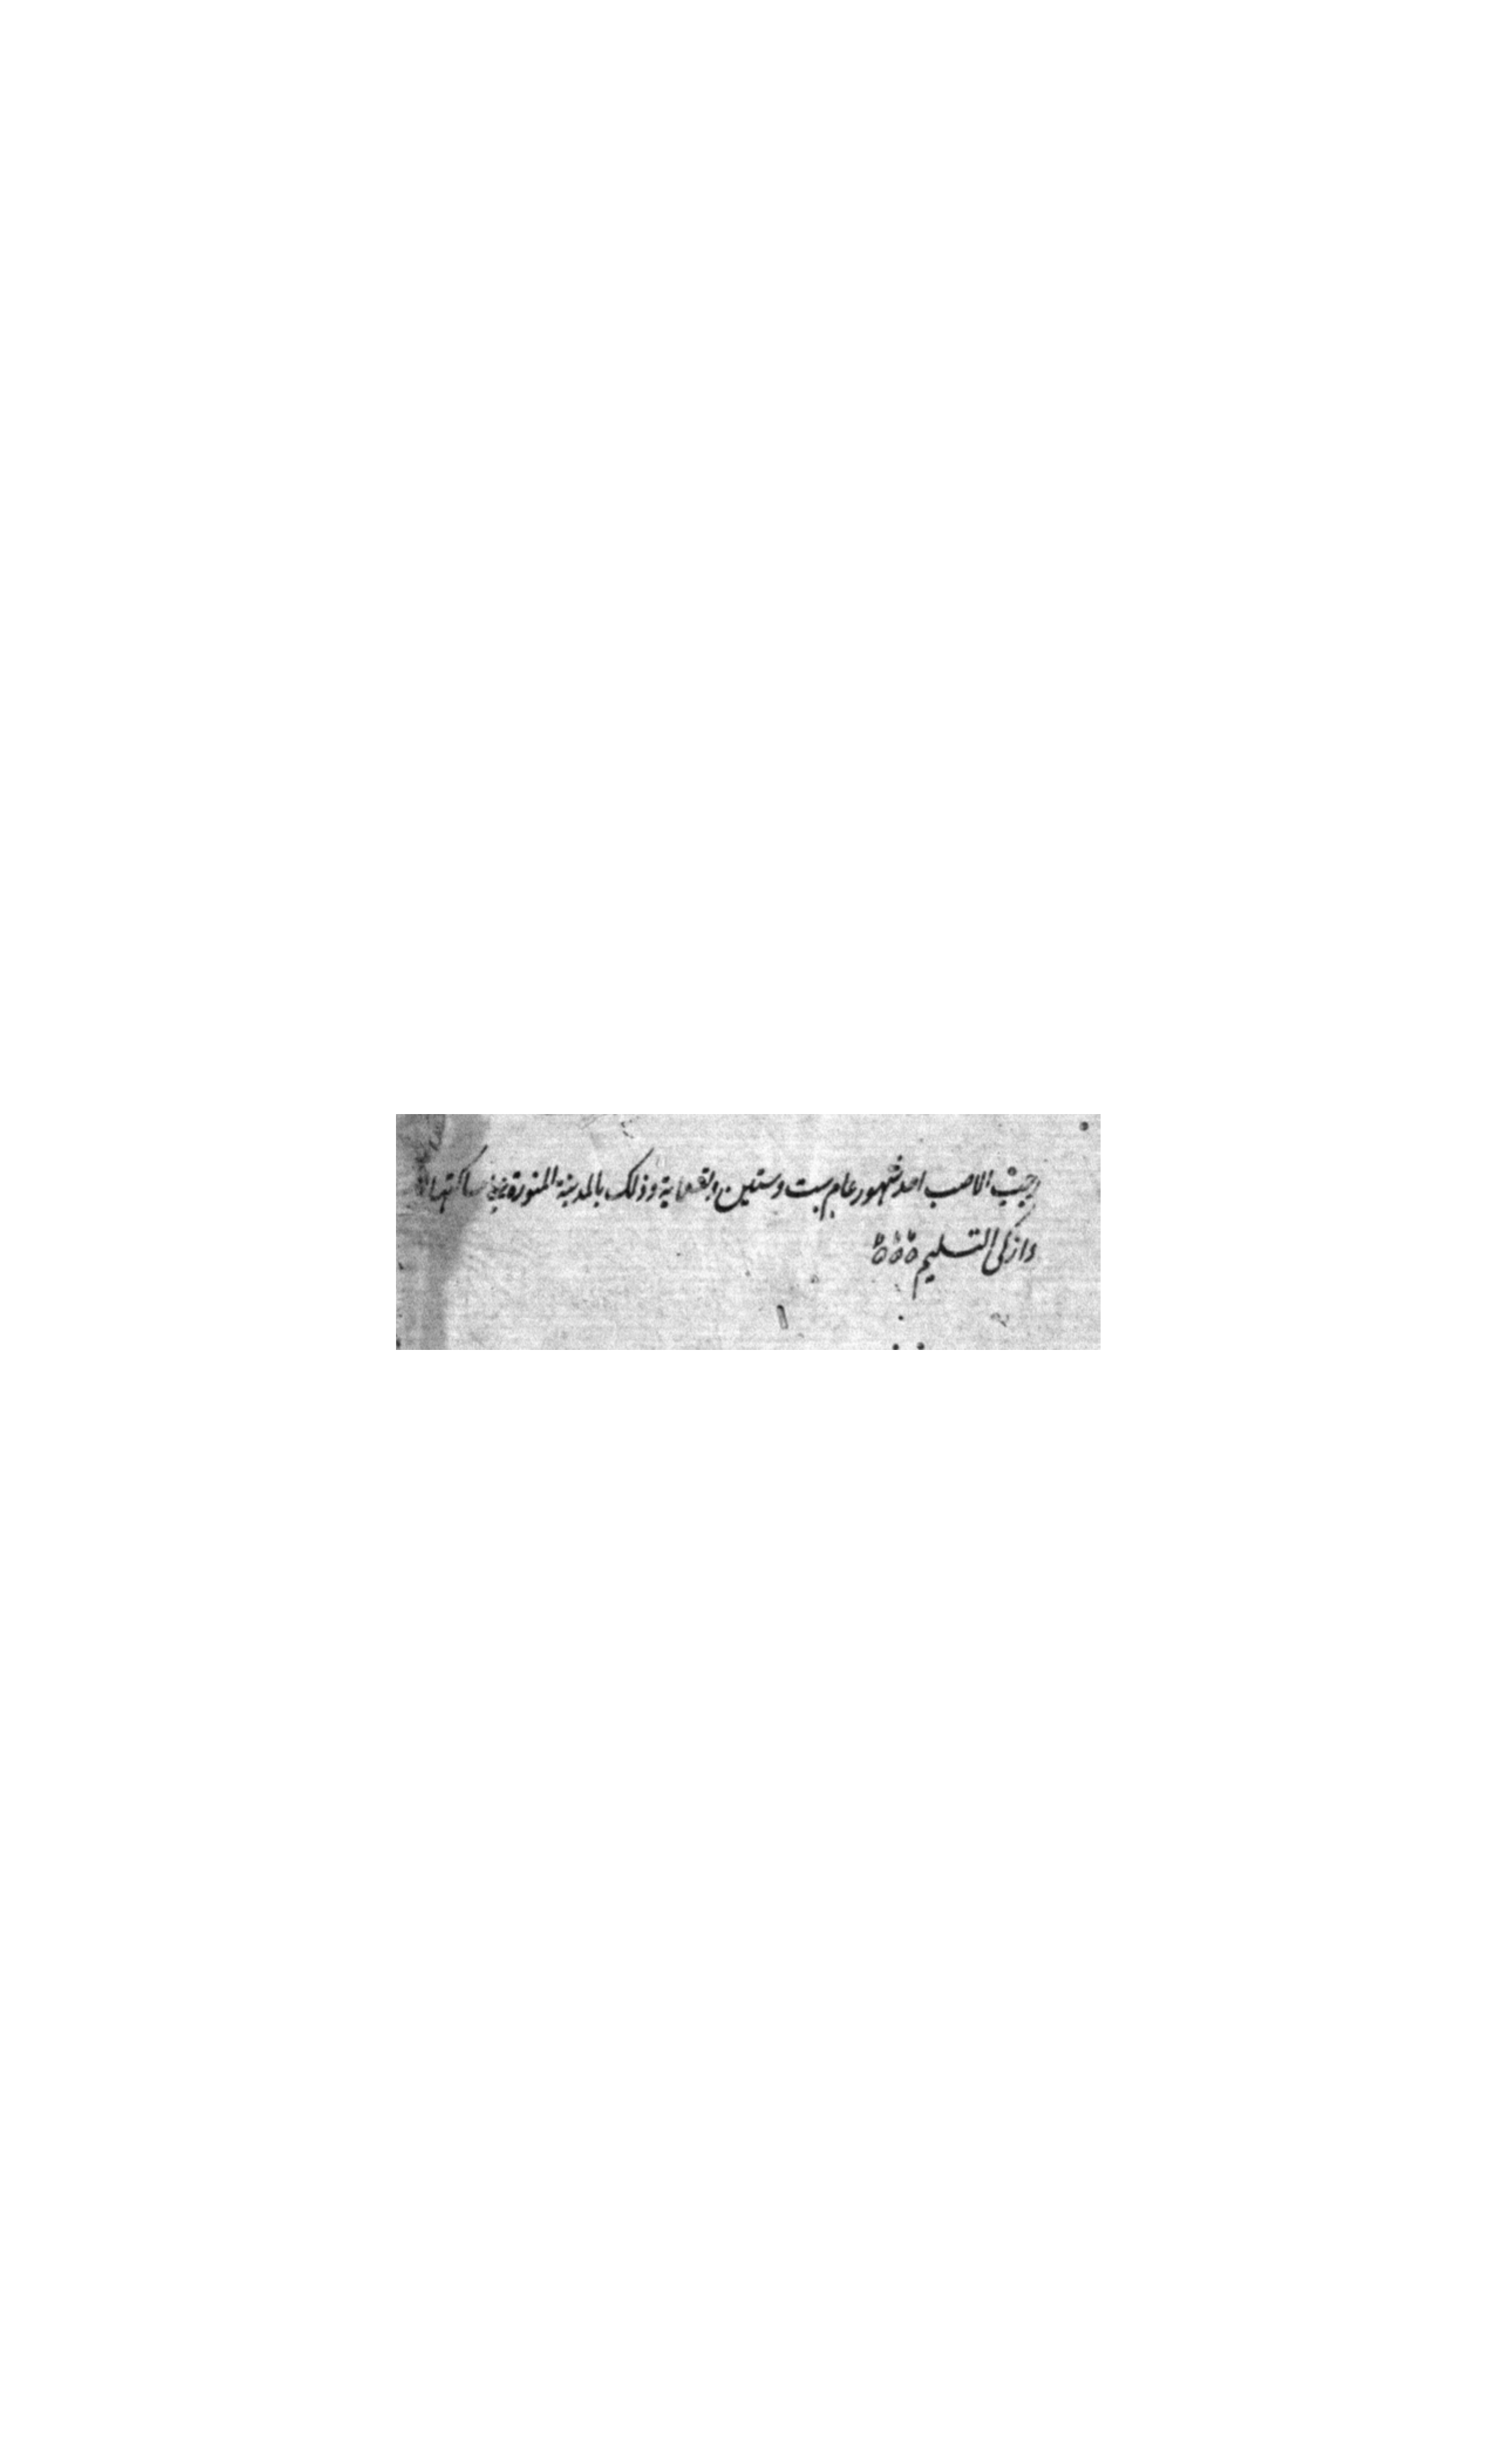 رجب الاصب احد شهور عام ست وستين وتسعماية وذلك بالمدينة المنورة على ساكنها
وازكى التسليم ۵۵۵